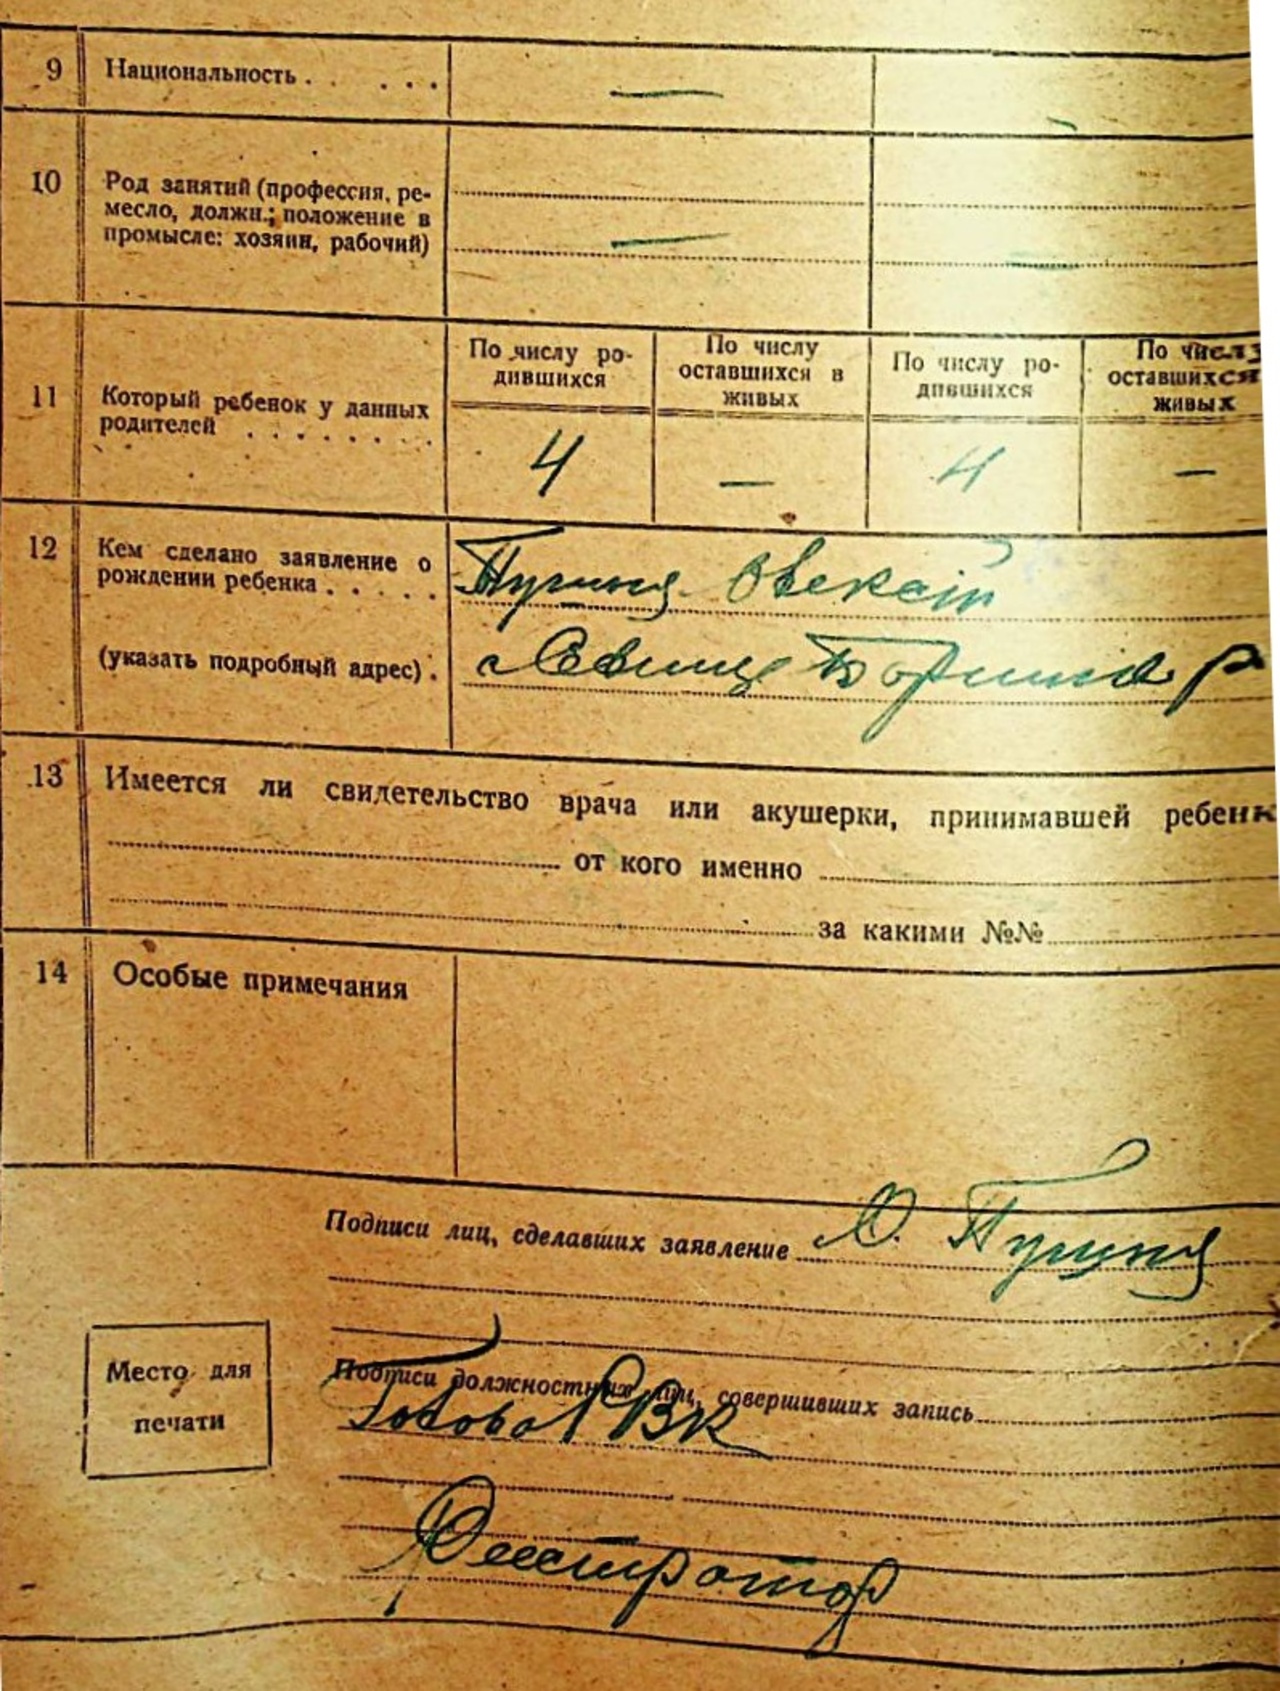 9 Национальность . . . . . — —
10 Род занятий (профессия, ре-
месло, должн.; положение в
промысле: хозяин, рабочий) — —
По числу ро-
дившихся
По числу
оставшихся в
живых
По числу ро-
дившихся
По числу
оставшихся
живых
11 Который ребенок у данных
родителей . . . . . . . .
4 — 4 —
12 Кем сделано заявление о
рождении ребенка . . . . .
(указать подробный адрес) .
13 Имеется ли свидетельство врача или акушерки, принимавшей ребенк
от кого именно
за какими №№
14 Особые примечания
Подписи лиц, сделавших заявление
Место для
печати
Подписи должностных лиц, совершивших запись